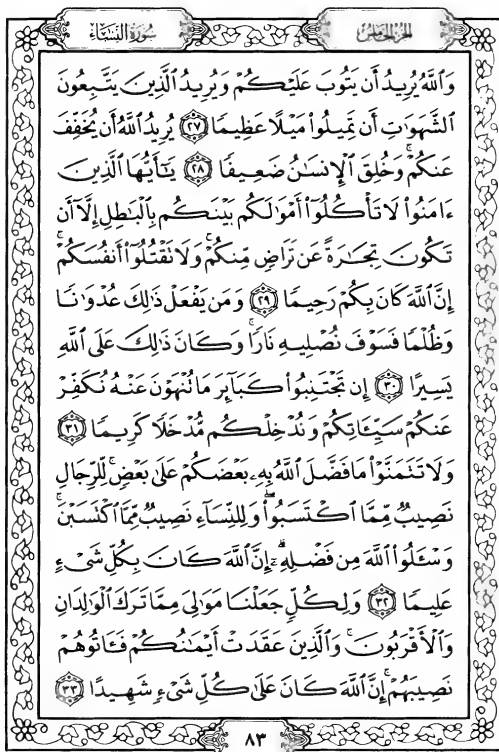 الجزء الخامس سورة النساء
وَاللَّهُ يُرِيدُ أَن يَتُوبَ عَلَيْكُمْ وَيُرِيدُ الَّذِينَ يَتَّبِعُونَ
الشَّهَوَاتِ أَن تَمِيلُوا۟ مَيْلًا عَظِيمًا ٢٧ يُرِيدُ اللَّهُ أَن يُخَفِّفَ
عَنكُمْ ۚ وَخُلِقَ الْإِنسَٰنُ ضَعِيفًا ٢٨ يَٰٓأَيُّهَا الَّذِينَ
ءَامَنُوا۟ لَا تَأْكُلُوٓا۟ أَمْوَٰلَكُم بَيْنَكُم بِالْبَٰطِلِ إِلَّآ أَن
تَكُونَ تِجَٰرَةً عَن تَرَاضٍ مِّنكُمْ ۚ وَلَا تَقْتُلُوٓا۟ أَنفُسَكُمْ ۚ
إِنَّ اللَّهَ كَانَ بِكُمْ رَحِيمًا ٢٩ وَمَن يَفْعَلْ ذَٰلِكَ عُدْوَٰنًا
وَظُلْمًا فَسَوْفَ نُصْلِيهِ نَارًا ۚ وَكَانَ ذَٰلِكَ عَلَى اللَّهِ
يَسِيرًا ٣٠ إِن تَجْتَنِبُوا۟ كَبَآئِرَ مَا تُنْهَوْنَ عَنْهُ نُكَفِّرْ
عَنكُمْ سَيِّـَٔاتِكُمْ وَنُدْخِلْكُم مُّدْخَلًا كَرِيمًا ٣١
وَلَا تَتَمَنَّوْا۟ مَا فَضَّلَ اللَّهُ بِهِۦ بَعْضَكُمْ عَلَىٰ بَعْضٍ ۚ لِّلرِّجَالِ
نَصِيبٌ مِّمَّا اكْتَسَبُوا۟ ۖ وَلِلنِّسَآءِ نَصِيبٌ مِّمَّا اكْتَسَبْنَ ۚ
وَسْـَٔلُوا۟ اللَّهَ مِن فَضْلِهِۦٓ ۗ إِنَّ اللَّهَ كَانَ بِكُلِّ شَىْءٍ
عَلِيمًا ٣٢ وَلِكُلٍّ جَعَلْنَا مَوَٰلِىَ مِمَّا تَرَكَ الْوَٰلِدَانِ
وَالْأَقْرَبُونَ ۚ وَالَّذِينَ عَقَدَتْ أَيْمَٰنُكُمْ فَـَٔاتُوهُمْ
نَصِيبَهُمْ ۚ إِنَّ اللَّهَ كَانَ عَلَىٰ كُلِّ شَىْءٍ شَهِيدًا ٣٣
٨٣